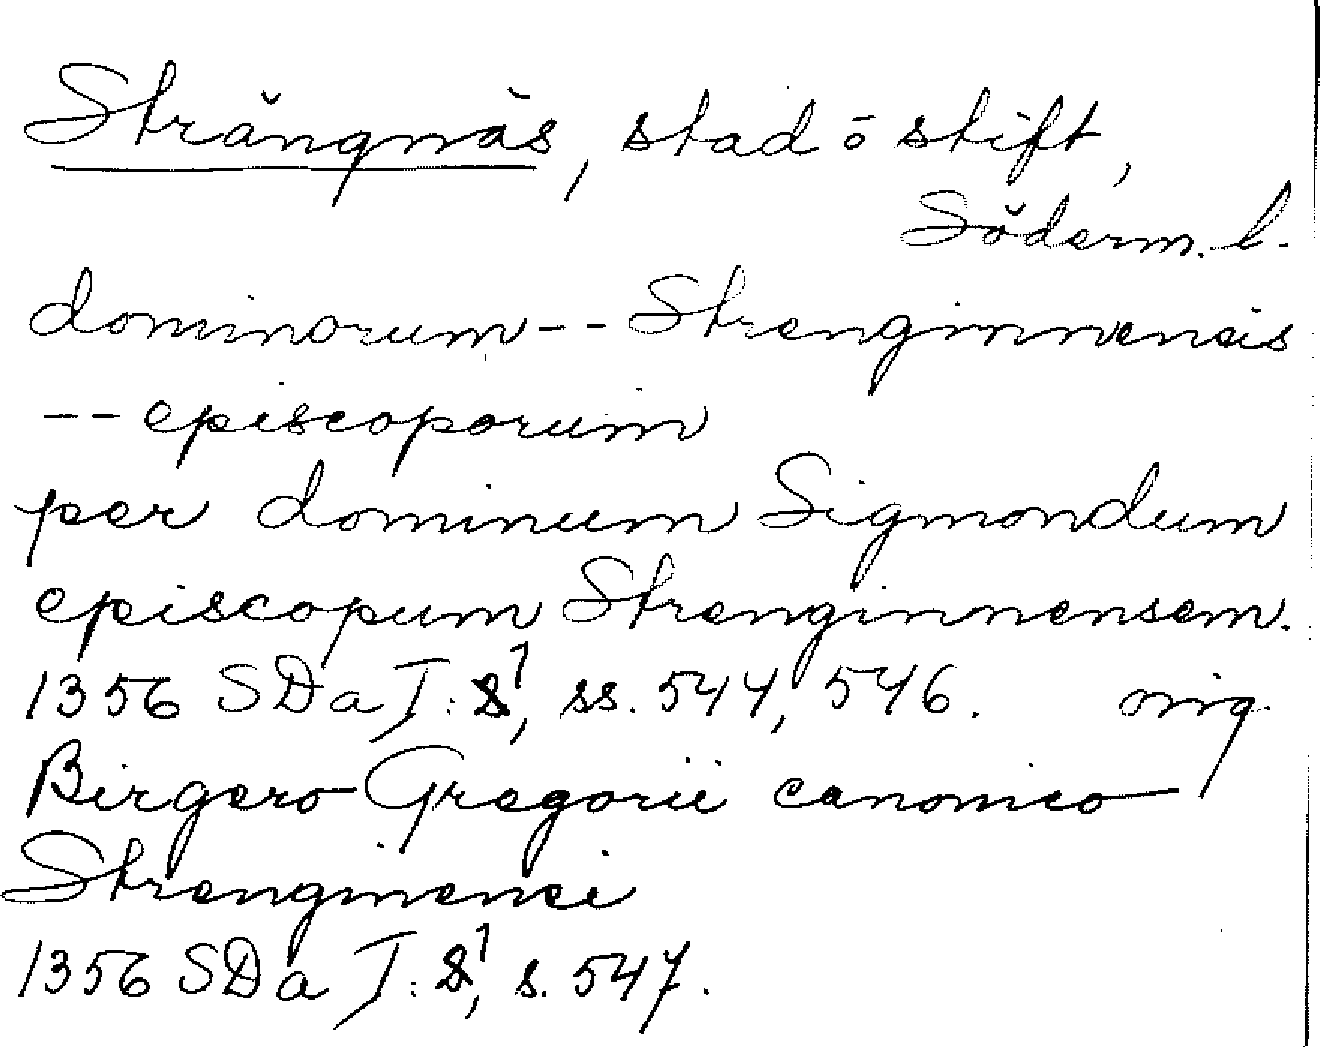 Strängnäs, stad o stift,
Söderm. l.
dominorum -- Strenginnensis
-- episcoporum
per dominum Sigmondum
episcopum Strenginnensem.
1356 SDa I: 1, ss. 544, 546. nig
Birgero Gregorii canonico
Strenginensi
1356 SDa I: 1, s. 547.